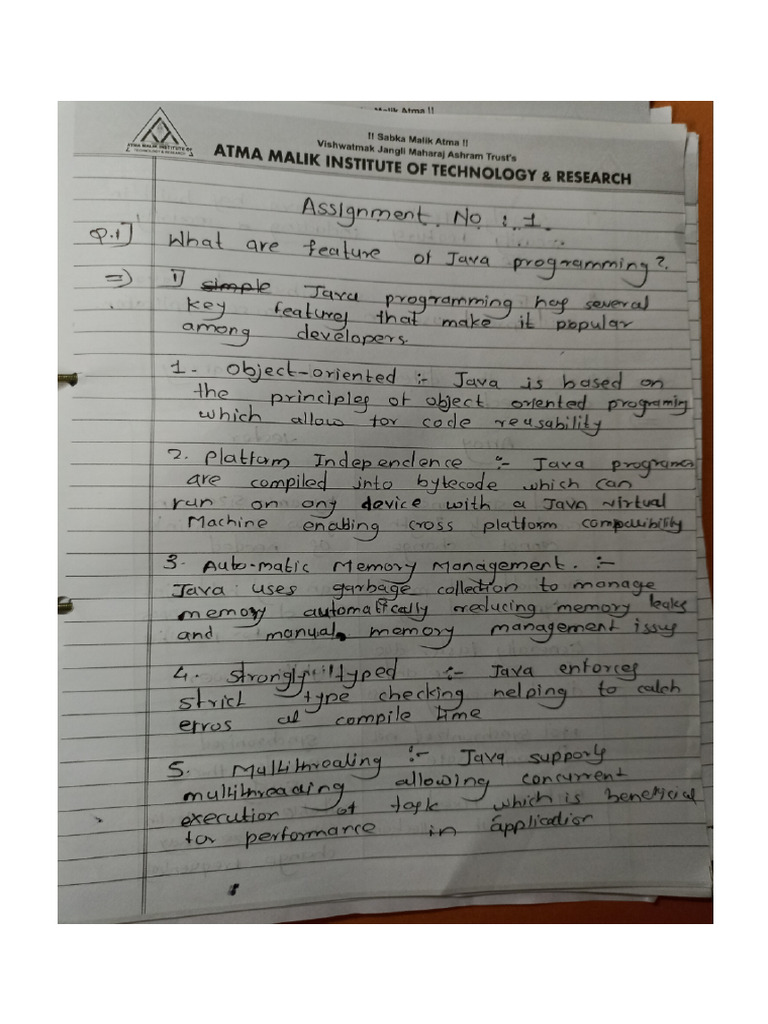 Malik Atma !!
!! Sabka Malik Atma !!
Vishwatmak Jangli Maharaj Ashram Trust's
ATMA MALIK INSTITUTE OF TECHNOLOGY & RESEARCH
ATMA MALIK INSTITUTE OF
TECHNOLOGY & RESEARCH
Assignment No : 1.
Q.1] What are feature of Java programming?.
=> 1) simple Java programming has several
key features that make it popular
among developers
1. Object-oriented :- Java is based on
the principles of object oriented programing
which allow for code reusability
2. Platform Independence :- Java programs
are compiled into bytecode which can
run on any device with a Java virtual
Machine enabling cross platform compatibility
3. Auto-matic Memory Management. :-
Java uses garbage collection to manage
memory automatically reducing memory leaks
and manual memory management issus
4. Strongly typed :- Java enforces
strict type checking helping to catch
erros at compile time
5. Multithreading :- Java supports
multithreading allowing concurrent
execution of task which is beneficial
for performance in application